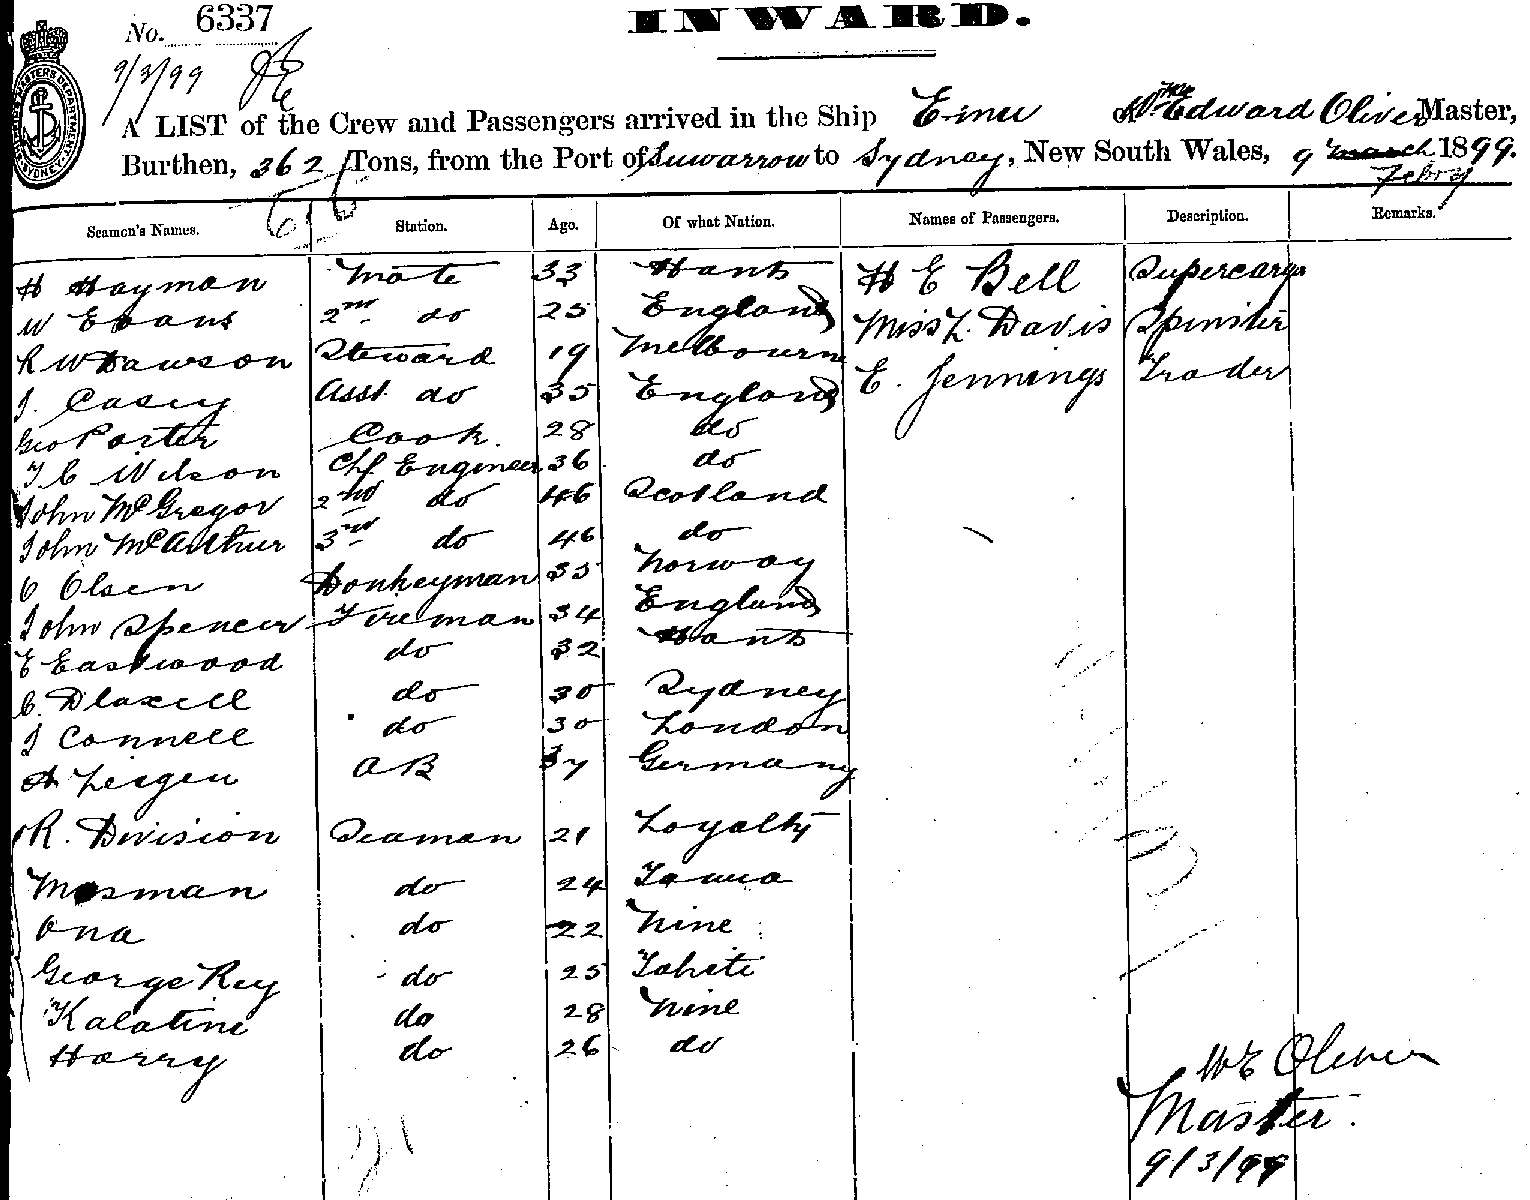 No. 6337
INWARD.
9/3/99
A LIST of the Crew and Passengers arrived in the Ship Eimeo Wm Edward Oliver Master,
Burthen, 362 Tons, from the Port of Suwarrow to Sydney, New South Wales, 9 march 1899.
Febry
Seamen's Names. Station. Age. Of what Nation. Names of Passengers. Description. Remarks.
H Hayman Mate 33 Hants H E Bell Supercargo
W Evans 2nd do 25 England Miss L. Davis Spinster
R W Dawson Steward 19 Melbourne E. Jennings Trader
J. Casey Asst. do 35 England
Geo Porter Cook. 28 do
T C Wilson Chf Engineer 36 do
John McGregor 2nd do 46 Scotland
John McArthur 3rd do 46 do
C Olsen Donkeyman 35 Norway
John Spencer Fireman 34 England
E Eastwood do 32 Hants
C. Dlaxell do 30 Sydney
J Connell do 30 London
A AB 37 Germany
R. Division Seaman 21 Loyalty
Mosman do 24
Ona do 22 Nine
George Rey do 25 Tahiti
Kalatini do 28 Nine
Harry do 26 do
WE Oliver
Master.
9/3/99